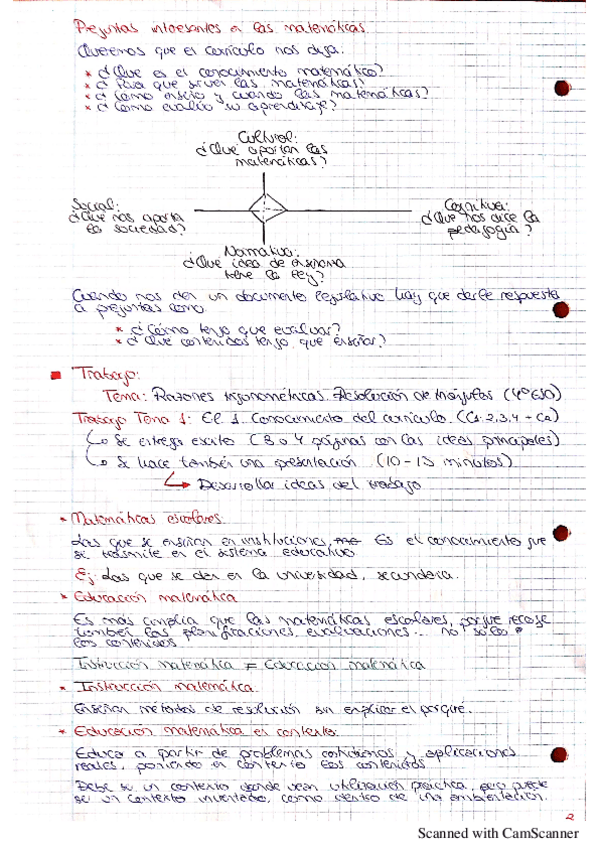 Preguntas interesantes en las matemáticas
Queremos que el currículo nos diga:
* ¿Que es el conocimiento matemático?
* ¿Para que sirven las matemáticas?
* ¿Cómo enseño y cuando las matemáticas?
* ¿Como evalúo su aprendizaje?
Cultural:
¿Que aportan las
matemáticas?
Social:
¿Que nos aporta
la sociedad?
Cognitiva:
¿Que nos dice la
pedagogía?
Normativa:
¿Que idea de enseñanza
tiene la ley?
Cuando nos den un documento legislativo hay que darle respuesta
a preguntas como
* ¿Cómo tengo que evaluar?
* ¿Que contenidos tengo que enseñar?
Trabajo:
Tema: Razones trigonométricas. Resolución de triángulos (4º ESO)
Trabajo Tema 1: El 1. Conocimiento del currículo. (C1.2,3,4 + Ca)
Se entrega escrito (3 o 4 páginas con las ideas principales)
Se hace también una presentación (10-15 minutos)
Desarrollar ideas del trabajo
* Matemáticas escolares
Las que se enseñan en instituciones. Es el conocimiento que
se transmite en el sistema educativo
Ej: Las que se dan en la universidad, secundaria.
* Educación matemática
Es más amplia que las matemáticas escolares, porque recoge
también las planificaciones, evaluaciones... no sólo
los contenidos.
Instrucción matemática ≠ Educación matemática
* Instrucción matemática.
Enseñan métodos de resolución sin explicar el porqué.
* Educación matemática en contexto.
Educa a partir de problemas cotidianos y aplicaciones
reales, poniendo en contexto los contenidos
Debe ser un contexto donde vean utilización práctica, pero puede
ser un contexto inventado, como dentro de una ambientación.
2
Scanned with CamScanner